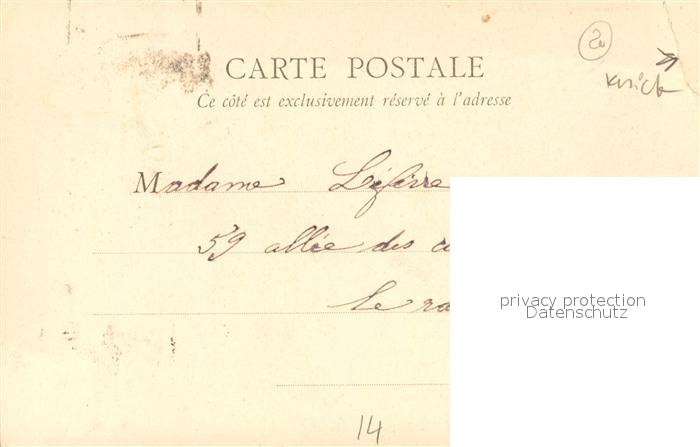 20
knick
CARTE POSTALE
Ce côté est exclusivement réservé à l'adresse
Madame Lefèvre
59 allée des
Le ra
privacy protection
Datenschutz
14